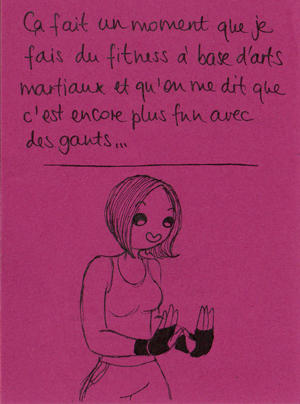 Ça fait un moment que je
fais du fitness à base d'arts
martiaux et qu'on me dit que
c'est encore plus fun avec
des gants...